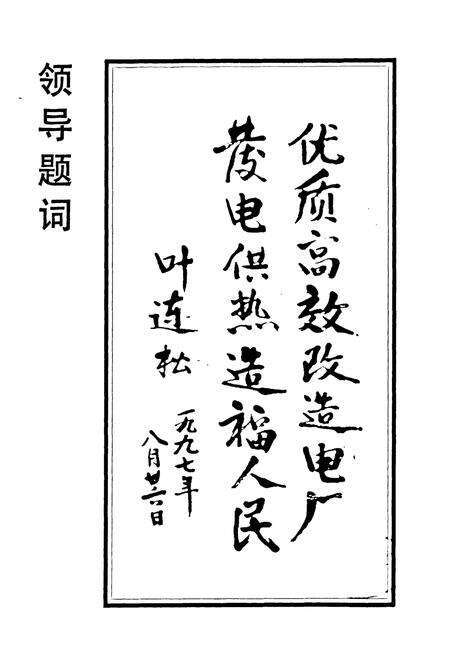 领导题词
优质高效改造电厂
发电供热造福人民
叶连松
一九九七年
八月廿六日